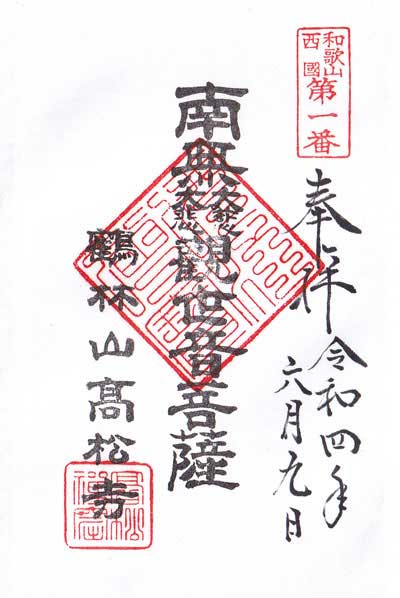 和歌山
西國
第一番
奉拝
令和四年
六月九日
南無大慈大悲観世音菩薩
鶴林山高松寺